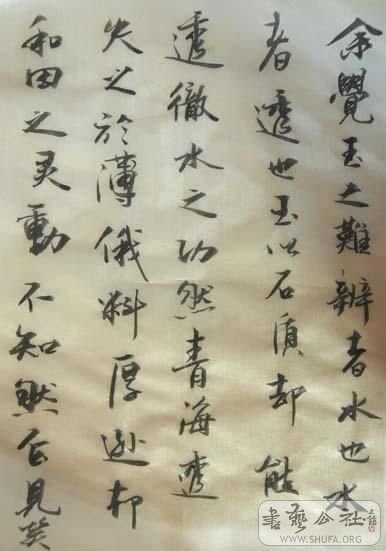 余覺玉之難辨者水也水
者透也玉以石質却能
透徹水之功然青海透
失之於薄俄料厚逊却
和田之灵動不知然否見笑
書藝公社
WWW.SHUFA.ORG